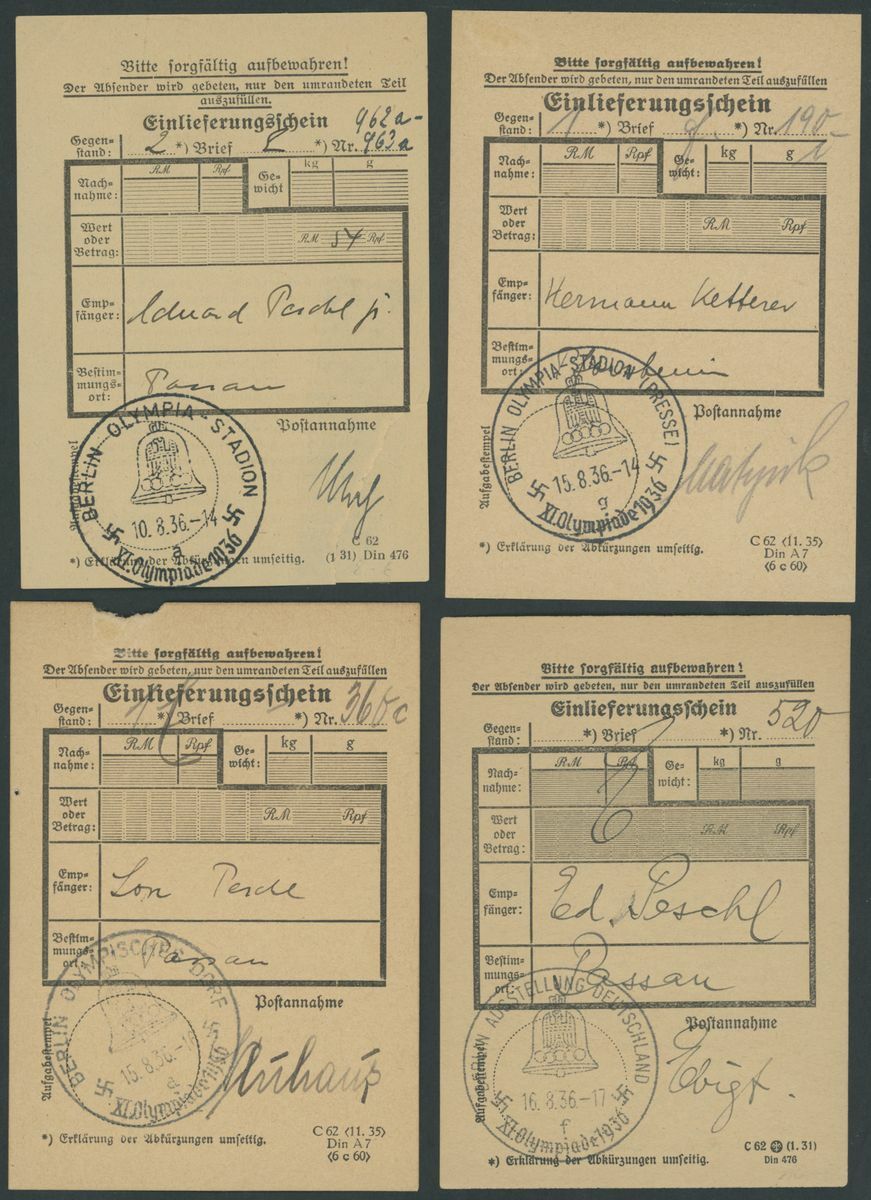 Bitte sorgfältig aufbewahren!
Der Absender wird gebeten, nur den umrandeten Teil
auszufüllen.
Einlieferungsschein 962a-
Gegen=
stand: 2 *) Brief *) Nr. 963a
Nach=
nahme: RM Rpf Ge=
wicht kg g
Wert
oder
Betrag: RM 54 Rpf
Emp=
fänger: Eduard Peschl jr.
Bestim=
mungs=
ort: Passau
Postannahme
Aufgabestempel
BERLIN OLYMPIA-STADION
10.8.36.-14
a
XI. Olympiade 1936
C 62
*) Erklärung der Abkürzungen umseitig. (1 31) Din 476
Bitte sorgfältig aufbewahren!
Der Absender wird gebeten, nur den umrandeten Teil auszufüllen
Einlieferungsschein
Gegen=
stand: 1 *) Brief *) Nr. 190
Nach=
nahme: RM Rpf Ge=
wicht: kg g
Wert
oder
Betrag: RM Rpf
Emp=
fänger: Hermann Ketterer
Bestim=
mungs=
ort:
Postannahme
Aufgabestempel
BERLIN OLYMPIA-STADION (PRESSE)
15.8.36.-14
g
XI. Olympiade 1936
*) Erklärung der Abkürzungen umseitig.
C 62 (11. 35)
Din A 7
(6 c 60)
Bitte sorgfältig aufbewahren!
Der Absender wird gebeten, nur den umrandeten Teil auszufüllen
Einlieferungsschein
Gegen=
stand: *) Brief *) Nr. 360c
Nach=
nahme: RM Rpf Ge=
wicht: kg g
Wert
oder
Betrag: RM Rpf
Emp=
fänger:
Bestim=
mungs=
ort: Passau
Postannahme
Aufgabestempel
BERLIN OLYMPISCHES DORF
15.8.36.-
d
XI. Olympiade 1936
*) Erklärung der Abkürzungen umseitig.
C 62 (11. 35)
Din A 7
(6 c 60)
Bitte sorgfältig aufbewahren!
Der Absender wird gebeten, nur den umrandeten Teil auszufüllen
Einlieferungsschein
Gegen=
stand: *) Brief *) Nr. 520
Nach=
nahme: RM Rpf Ge=
wicht: kg g
Wert
oder
Betrag: RM Rpf
Emp=
fänger: Ed. Peschl
Bestim=
mungs=
ort: Passau
Postannahme
Aufgabestempel
BERLIN AUSSTELLUNG DEUTSCHLAND
16.8.36-17
f
XI. Olympiade 1936
C 62 (1. 31)
*) Erklärung der Abkürzungen umseitig. Din 476